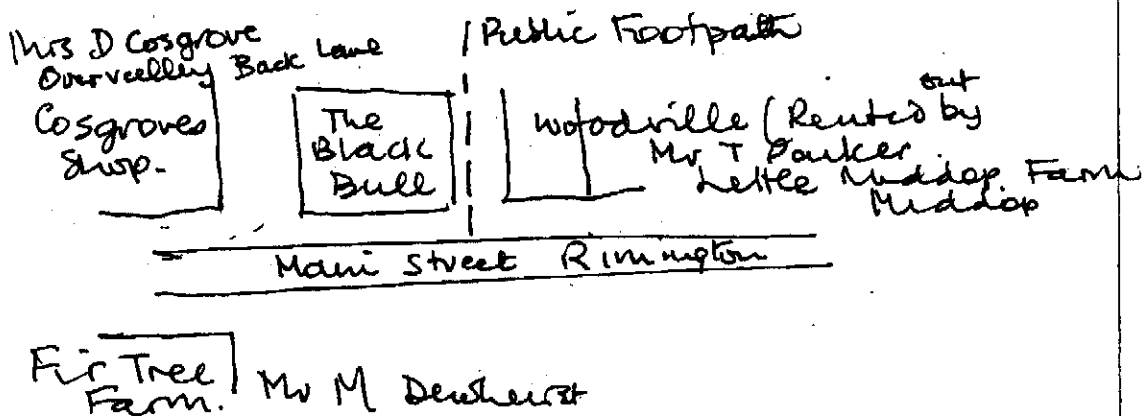 Mrs D Cosgrove
Overvalley Back Lane
Cosgroves
Shop.
The
Black
Bull
Public Footpath
Woodville (Rented out by
Mr T Parker.
Little Middop Farm
Middop
Main Street Rimington
Fir Tree
Farm.
Mr M Dewhurst